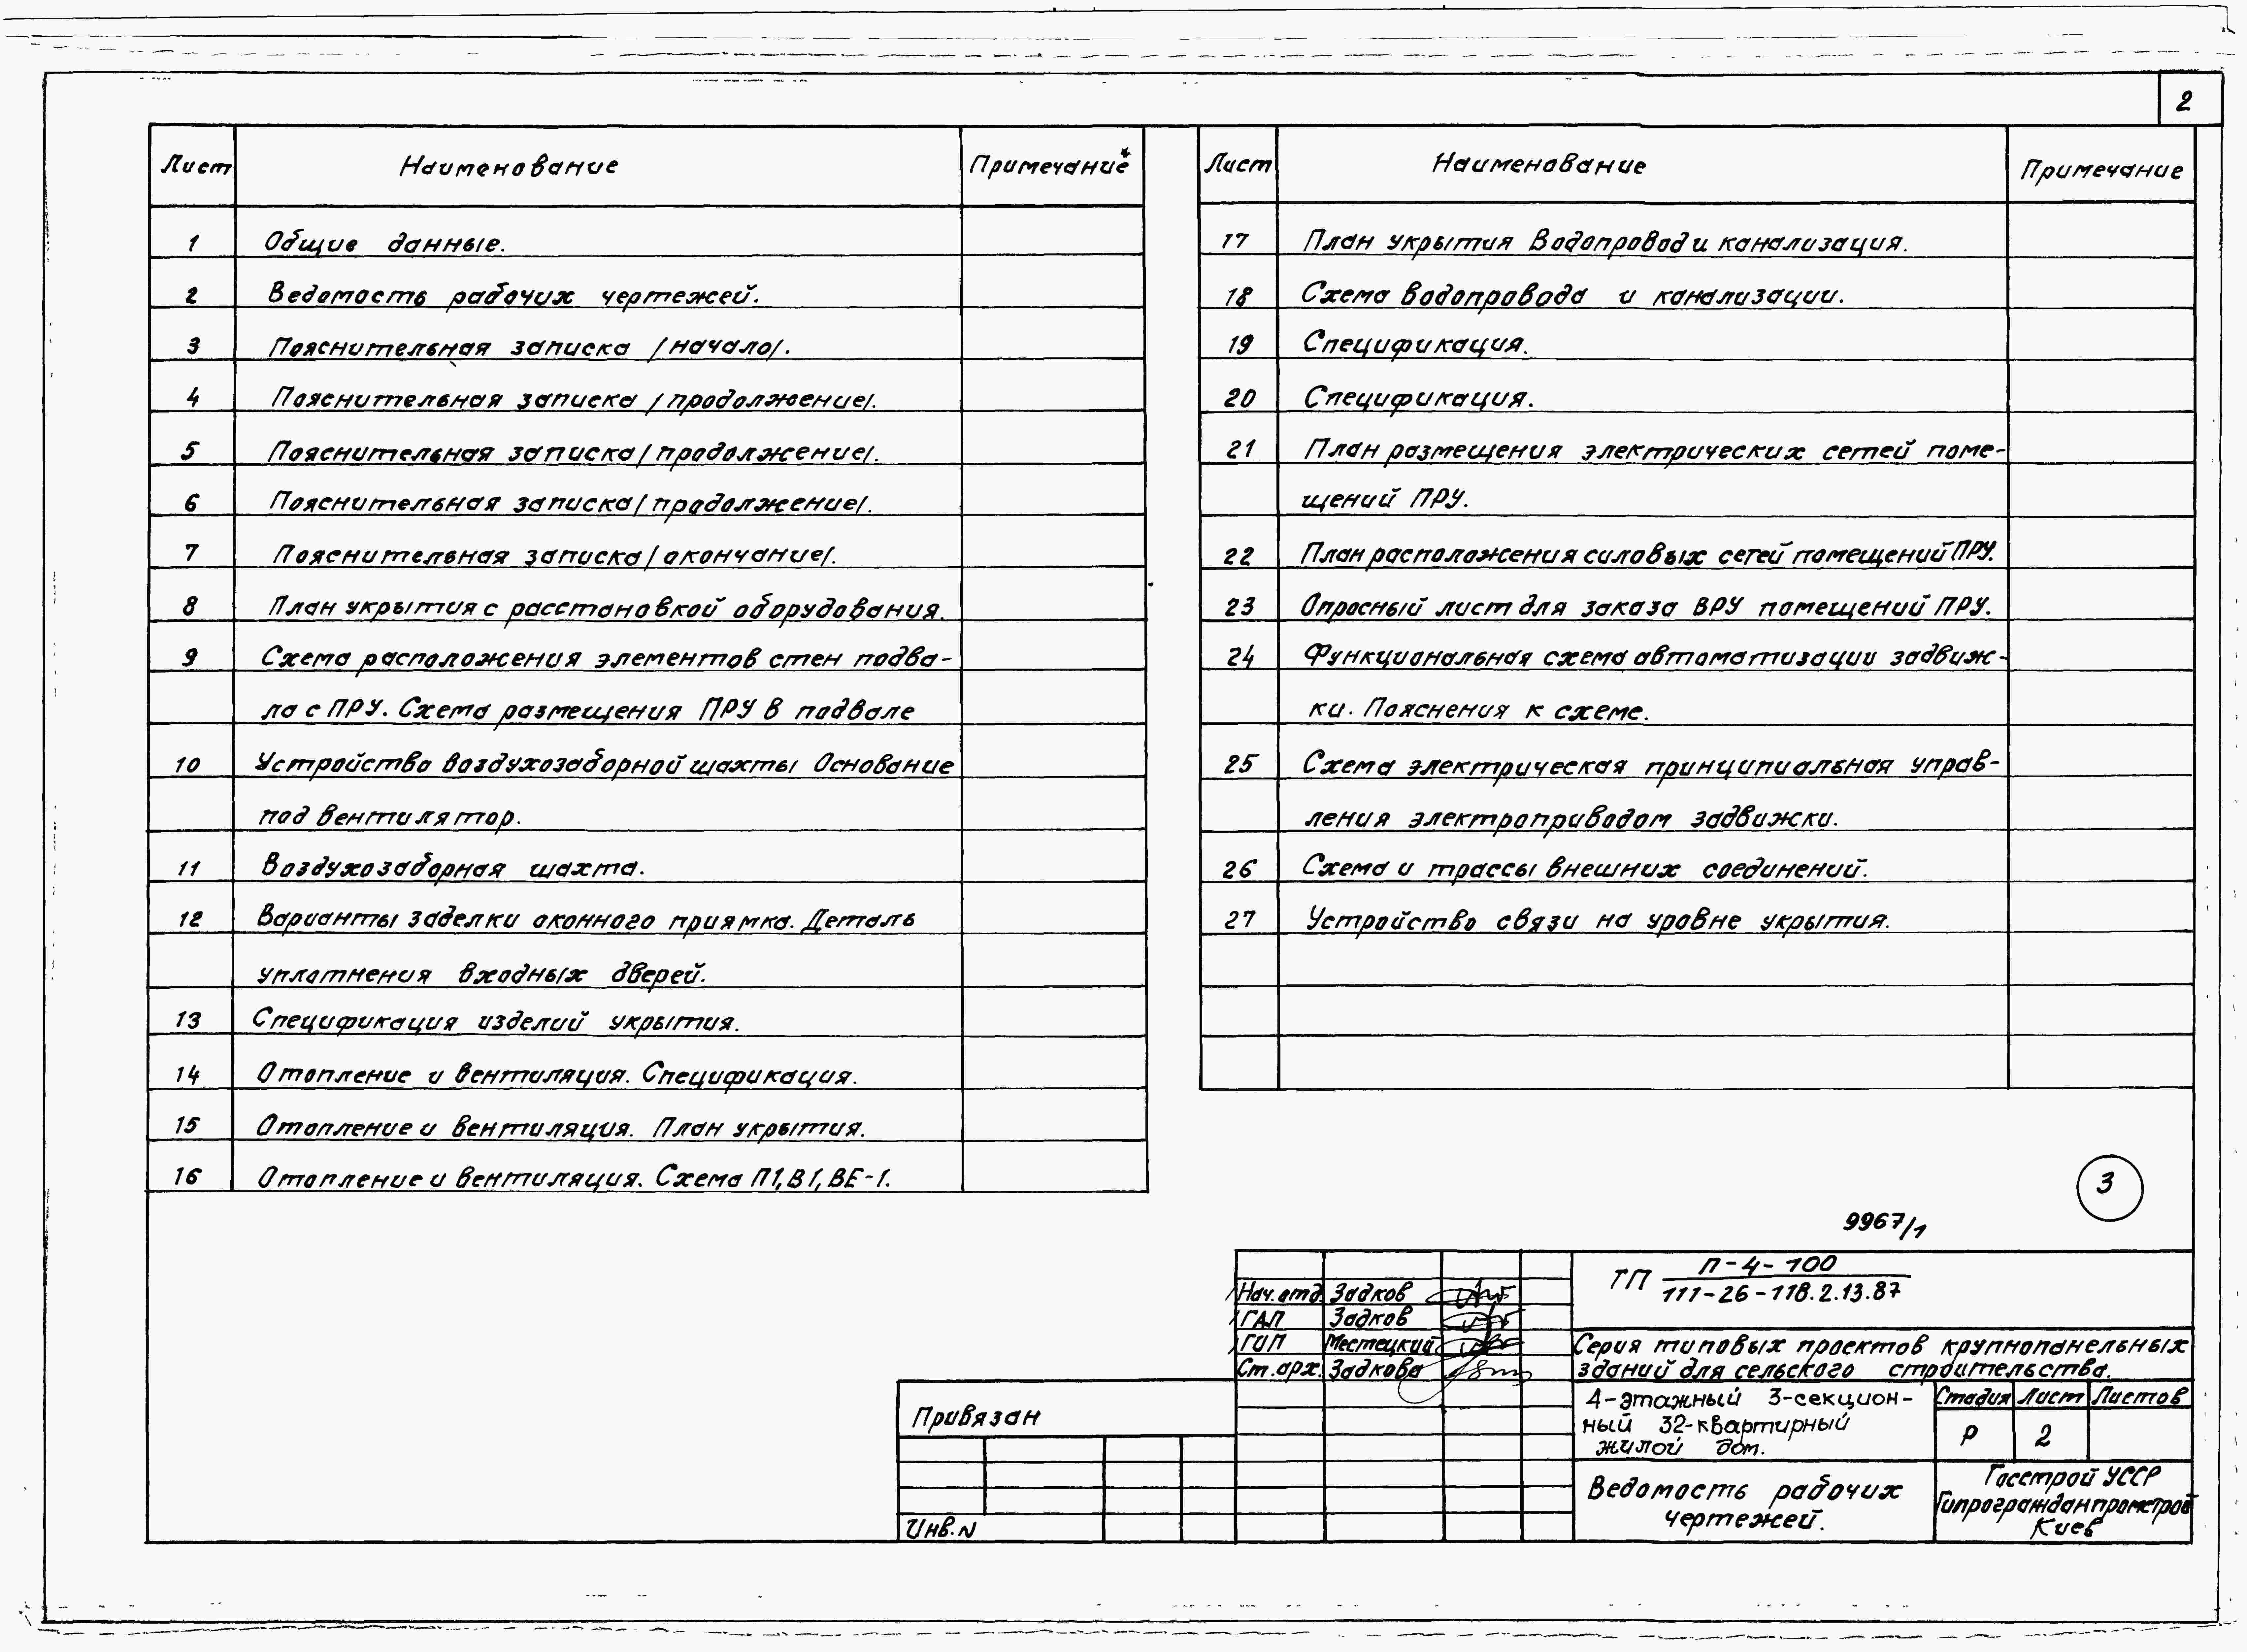 2
Лист Наименование Примечание*
1 Общие данные.
2 Ведомость рабочих чертежей.
3 Пояснительная записка /начало/.
4 Пояснительная записка /продолжение/.
5 Пояснительная записка /продолжение/.
6 Пояснительная записка /продолжение/.
7 Пояснительная записка /окончание/.
8 План укрытия с расстановкой оборудования.
9 Схема расположения элементов стен подва-
ла с ПРУ. Схема размещения ПРУ в подвале
10 Устройство воздухозаборной шахты Основание
под вентилятор.
11 Воздухозаборная шахта.
12 Варианты заделки оконного приямка. Деталь
уплотнения входных дверей.
13 Спецификация изделий укрытия.
14 Отопление и вентиляция. Спецификация.
15 Отопление и вентиляция. План укрытия.
16 Отопление и вентиляция. Схема П1, В1, ВЕ-1.
Лист Наименование Примечание
17 План укрытия Водопровод и канализация.
18 Схема водопровода и канализации.
19 Спецификация.
20 Спецификация.
21 План размещения электрических сетей поме-
щений ПРУ.
22 План расположения силовых сетей помещений ПРУ.
23 Опросный лист для заказа ВРУ помещений ПРУ.
24 Функциональная схема автоматизации задвиж-
ки. Пояснения к схеме.
25 Схема электрическая принципиальная управ-
ления электроприводом задвижки.
26 Схема и трассы внешних соединений.
27 Устройство связи на уровне укрытия.
3
9967/1
ТП П-4-100
111-26-118.2.13.87
Нач.отд. Задков
ГАП Задков
ГИП Местецкий
Ст.арх. Задкова
Серия типовых проектов крупнопанельных
зданий для сельского строительства.
4-этажный 3-секцион-
ный 32-квартирный
жилой дом.
Стадия Лист Листов
Р 2
Ведомость рабочих
чертежей.
Госстрой УССР
Гипрогражданпромстрой
Киев
Привязан
Инв.N